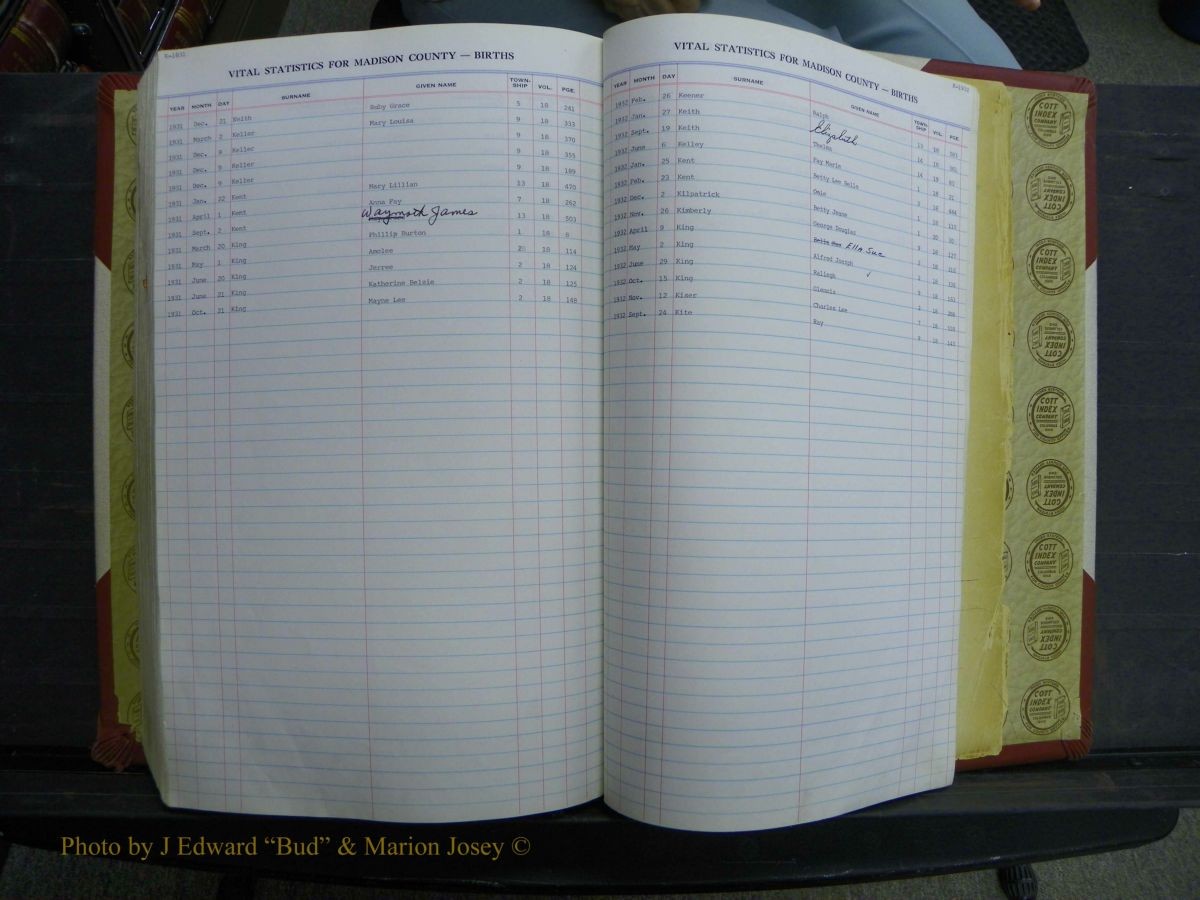 K-1931
VITAL STATISTICS FOR MADISON COUNTY — BIRTHS
YEAR MONTH DAY SURNAME GIVEN NAME TOWN-SHIP VOL. PGE.
1931 Dec. 21 Keith Ruby Grace 5 18 241
1931 March 2 Keller Mary Louisa 9 18 333
1931 Dec. 8 Keller 9 18 370
1931 Dec. 9 Keller 9 18 355
1931 Dec. 9 Keller 9 18 189
1931 Jan. 22 Kent Mary Lillian 13 18 470
1931 April 1 Kent Anna Fay 7 18 262
1931 Sept. 2 Kent Waymoth James 13 18 503
1931 March 20 King Phillip Burton 1 18 8
1931 May 1 King Amolee 2 18 114
1931 June 20 King Jerree 2 18 124
1931 June 21 King Katherine Delzie 2 18 125
1931 Oct. 21 King Mayne Lee 2 18 148
VITAL STATISTICS FOR MADISON COUNTY — BIRTHS
K-1932
YEAR MONTH DAY SURNAME GIVEN NAME TOWN-SHIP VOL. PGE
1932 Feb. 26 Keener Ralph
1932 Jan. 27 Keith Elizabeth
1932 Sept. 19 Keith Thelma
1932 June 6 Kelley Fay Marie
1932 Jan. 25 Kent Betty Lee
1932 Feb. 23 Kent
1932 Dec. 2 Kilpatrick Betty Jeane
1932 Nov. 26 Kimberly George Douglas
1932 April 9 King Ella Sue
1932 May 2 King Alfred Joseph
1932 June 29 King Raliegh
1932 Oct. 15 King Glennis
1932 Nov. 12 Kiser Charles Lee
1932 Sept. 24 Kite Ray
COTT INDEX COMPANY COLUMBUS OHIO
Photo by J Edward “Bud” & Marion Josey ©